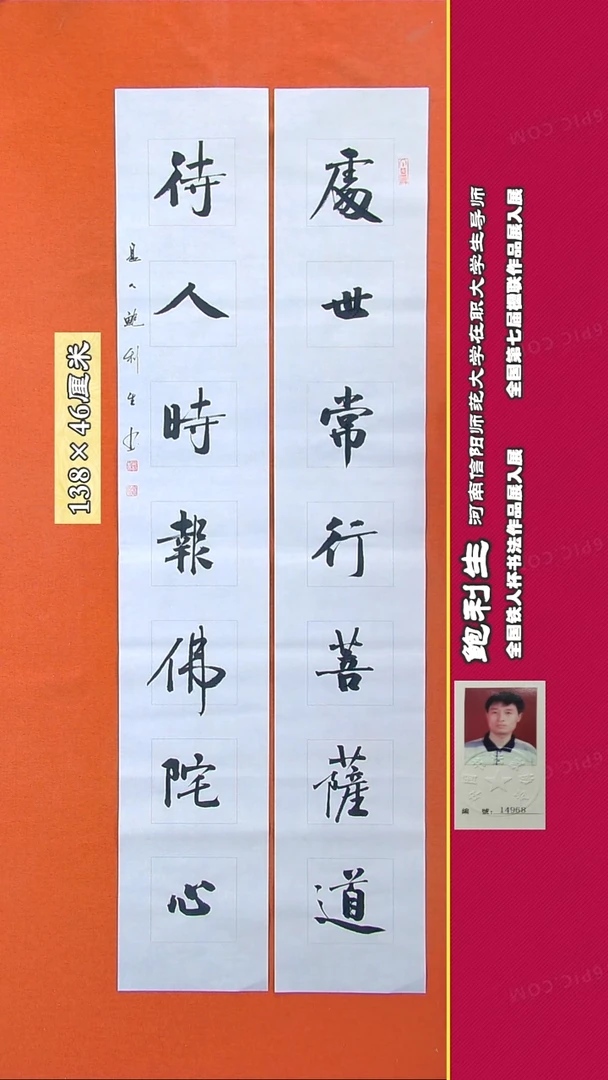 處世常行菩薩道
待人時報佛陀心
鮑利生
138×46厘米
鲍利生 河南信阳师范大学在职大学生导师
全国铁人杯书法作品展入展 全国第七届楹联作品展入展
編 號: 14958
6PIC.COM
6PIC.COM
6PIC.COM
6PIC.COM
6PIC.COM